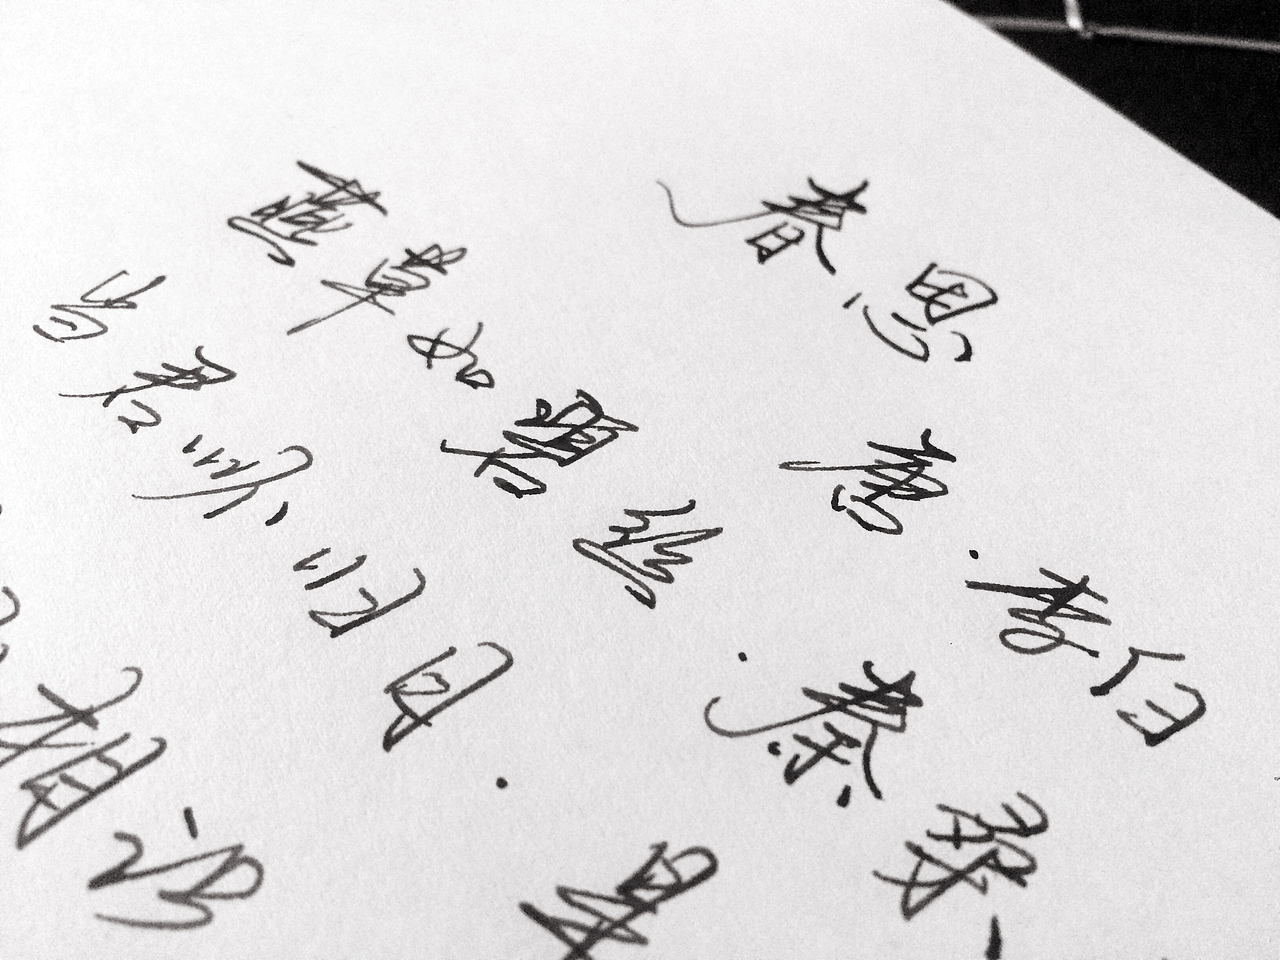 春思
唐·李白
燕草如碧丝·秦桑
当君怀归日·是
相识